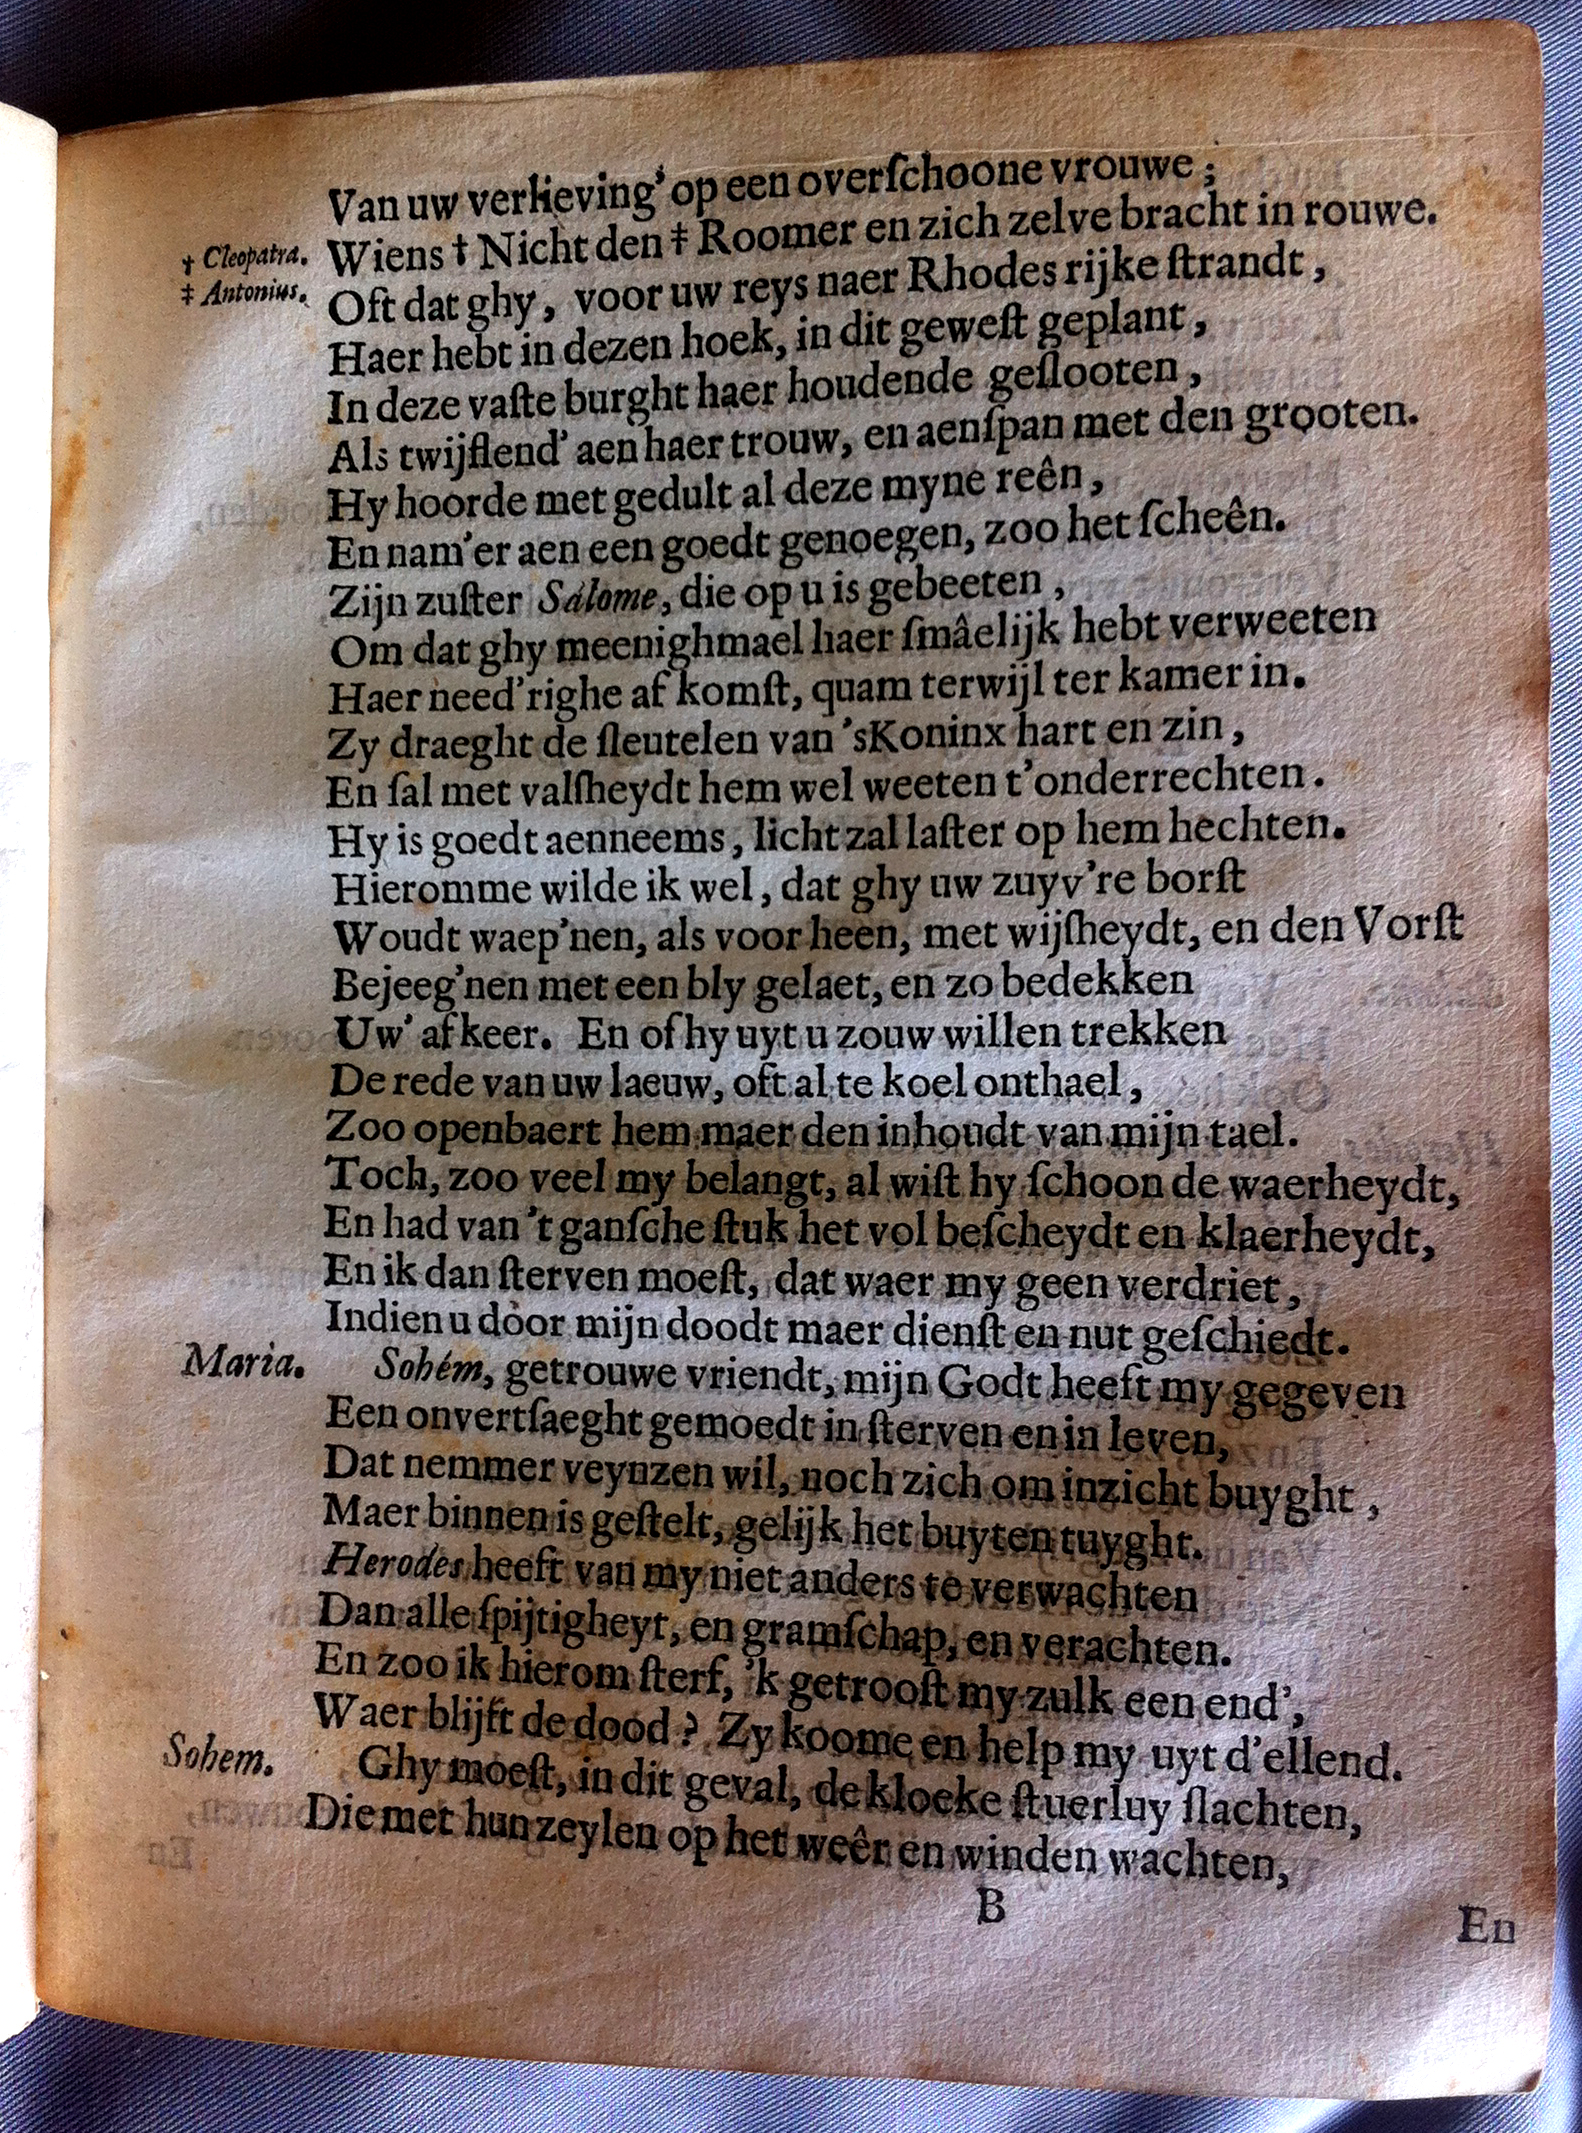 Van uw verlieving' op een overſchoone vrouwe;
† Cleopatra. Wiens † Nicht den ‡ Roomer en zich zelve bracht in rouwe.
‡ Antonius. Oft dat ghy, voor uw reys naer Rhodes rijke ſtrandt,
Haer hebt in dezen hoek, in dit geweſt geplant,
In deze vaſte burght haer houdende geſlooten,
Als twijflend' aen haer trouw, en aenſpan met den grooten.
Hy hoorde met gedult al deze myne reên,
En nam'er aen een goedt genoegen, zoo het ſcheên.
Zijn zuſter Sálome, die op u is gebeeten,
Om dat ghy meenighmael haer ſmâelijk hebt verweeten
Haer need'righe af komſt, quam terwijl ter kamer in.
Zy draeght de ſleutelen van 'sKoninx hart en zin,
En ſal met valſheydt hem wel weeten t'onderrechten.
Hy is goedt aenneems, licht zal laſter op hem hechten.
Hieromme wilde ik wel, dat ghy uw zuyv're borſt
Woudt waep'nen, als voor heen, met wijſheydt, en den Vorſt
Bejeeg'nen met een bly gelaet, en zo bedekken
Uw' afkeer. En of hy uyt u zouw willen trekken
De rede van uw laeuw, oft al te koel onthael,
Zoo openbaert hem maer den inhoudt van mijn tael.
Toch, zoo veel my belangt, al wiſt hy ſchoon de waerheydt,
En had van 't ganſche ſtuk het vol beſcheydt en klaerheydt,
En ik dan ſterven moeſt, dat waer my geen verdriet,
Indien u door mijn doodt maer dienſt en nut geſchiedt.
Maria. Sohém, getrouwe vriendt, mijn Godt heeft my gegeven
Een onvertſaeght gemoedt in ſterven en in leven,
Dat nemmer veynzen wil, noch zich om inzicht buyght,
Maer binnen is geſtelt, gelijk het buyten tuyght.
Herodes heeft van my niet anders te verwachten
Dan alle ſpijtigheyt, en gramſchap, en verachten.
En zoo ik hierom ſterf, 'k getrooſt my zulk een end',
Waer blijft de dood? Zy koome en help my uyt d'ellend.
Sohem. Ghy moeſt, in dit geval, de kloeke ſtuerluy ſlachten,
Die met hun zeylen op het weêr en winden wachten,
B
En